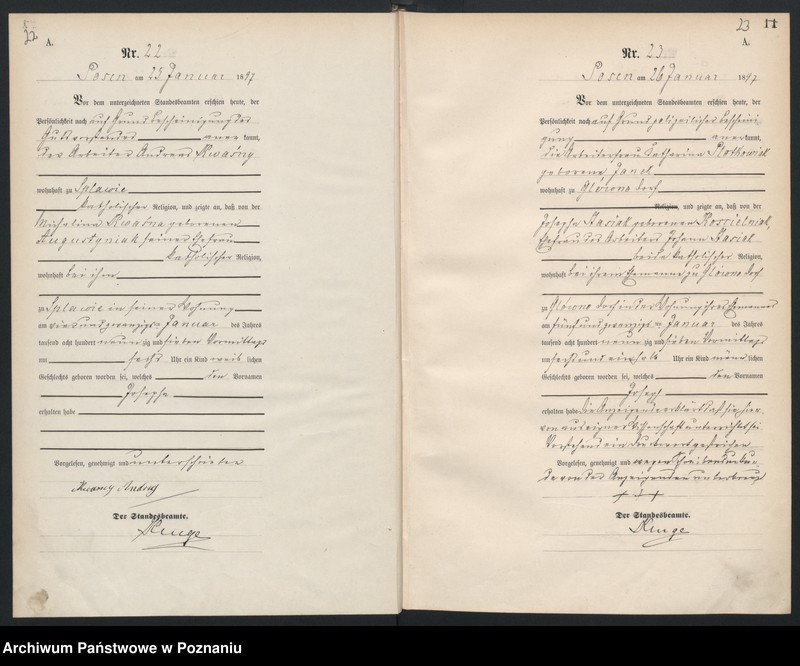 22
A.
Nr. 22
Posen am 25 Januar 1897
Vor dem unterzeichneten Standesbeamten erschien heute, der
Persönlichkeit nach auf Grund Bescheinigung des
Gutsvorstandes anerkannt,
der Arbeiter Andreas Kwaśny
wohnhaft zu Splawie
katholischer Religion, und zeigte an, daß von der
Michalina Kwaśna geborenen
Augustyniak seiner Ehefrau
katholischer Religion,
wohnhaft bei ihm
zu Splawie in seiner Wohnung
am vierundzwanzigsten Januar des Jahres
tausend acht hundert neunzig und sieben Vormittags
um sechs Uhr ein Kind weiblichen
Geschlechts geboren worden sei, welches den Vornamen
Josepha
erhalten habe
Vorgelesen, genehmigt und unterschrieben
Kwasny Andrzy
Der Standesbeamte.
23
11
A.
Nr. 23
Posen am 26 Januar 1897
Vor dem unterzeichneten Standesbeamten erschien heute, der
Persönlichkeit nach auf Grund polizeilicher Bescheini
gung anerkannt,
die Arbeiterfrau Katharina Plotkowiak
geborene
wohnhaft zu Glowno Dorf
Religion, und zeigte an, daß von der
Josepha Stasiak geborenen Koscielniak,
Ehefrau des Arbeiters Johann Stasiak
beide katholischer Religion,
wohnhaft bei ihrem Ehemanne zu Glowno Dorf
zu Glowno Dorf in der Wohnung ihres Ehemannes
am fünfundzwanzigsten Januar des Jahres
tausend acht hundert neunzig und sieben Vormittags
um sechs und einhalb Uhr ein Kind männlichen
Geschlechts geboren worden sei, welches den Vornamen
Joseph
erhalten habe. Die Anzeigende erklärt, daß sie hier
von aus eigener Wissenschaft unterrichtet sei
Vorstehend ein Druckwort gestrichen
Vorgelesen, genehmigt und wegen Schreibensunkun
de von der Anzeigenden unterkreuzt
+++
Der Standesbeamte.
Archiwum Państwowe w Poznaniu